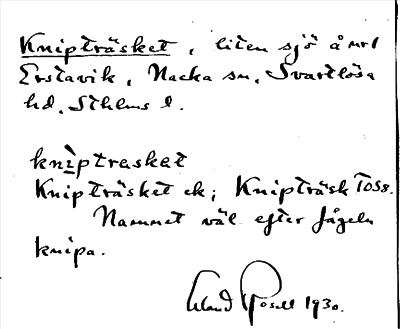 Knipträsket, liten sjö å mrl
Erstavik, Nacka sn, Svartlösa
hd, Sthlms l.
knìptrasket
Knipträsket ek; Knipträsk
Namnet väl efter fågeln
knipa.
Erland Rosell 1930.